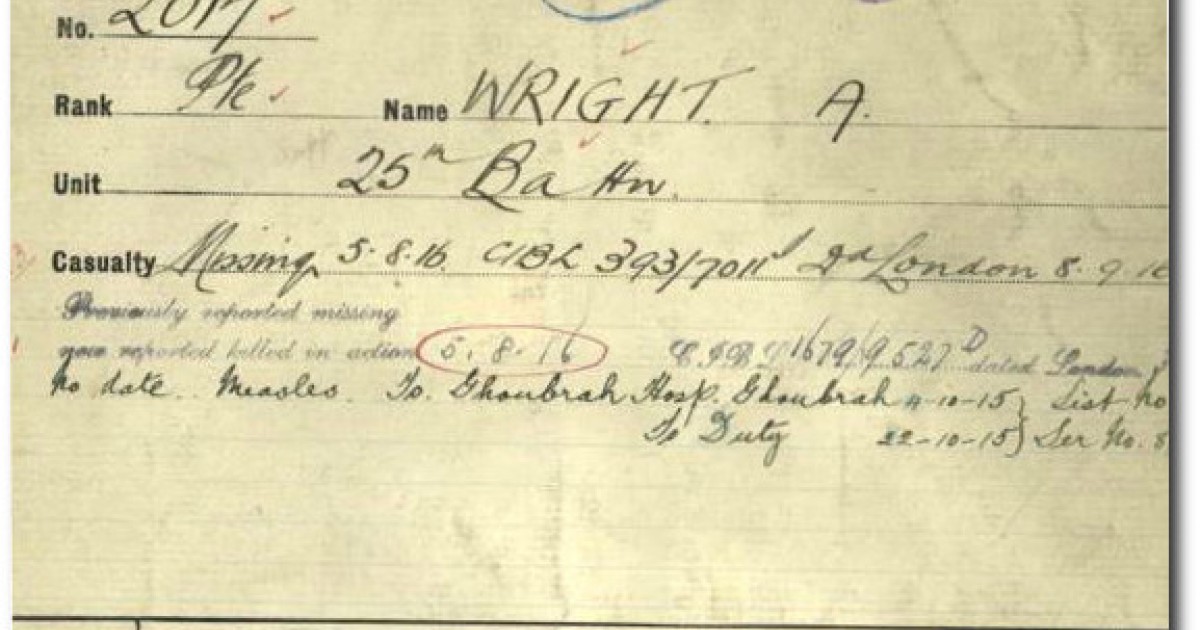 No. 2017
Rank Pte Name WRIGHT. A.
Unit 25th Battn.
Casualty Missing 5.8.16. CIBL 393/7011 Dd London 8.9.16
Previously reported missing
now reported killed in action 5.8.16 C.I.B.L 1679/9527D dated London
No date. Measles. To. Ghoubrah Hosp. Ghoubrah 4-10-15} List No
To Duty 22-10-15} Ser No. 8